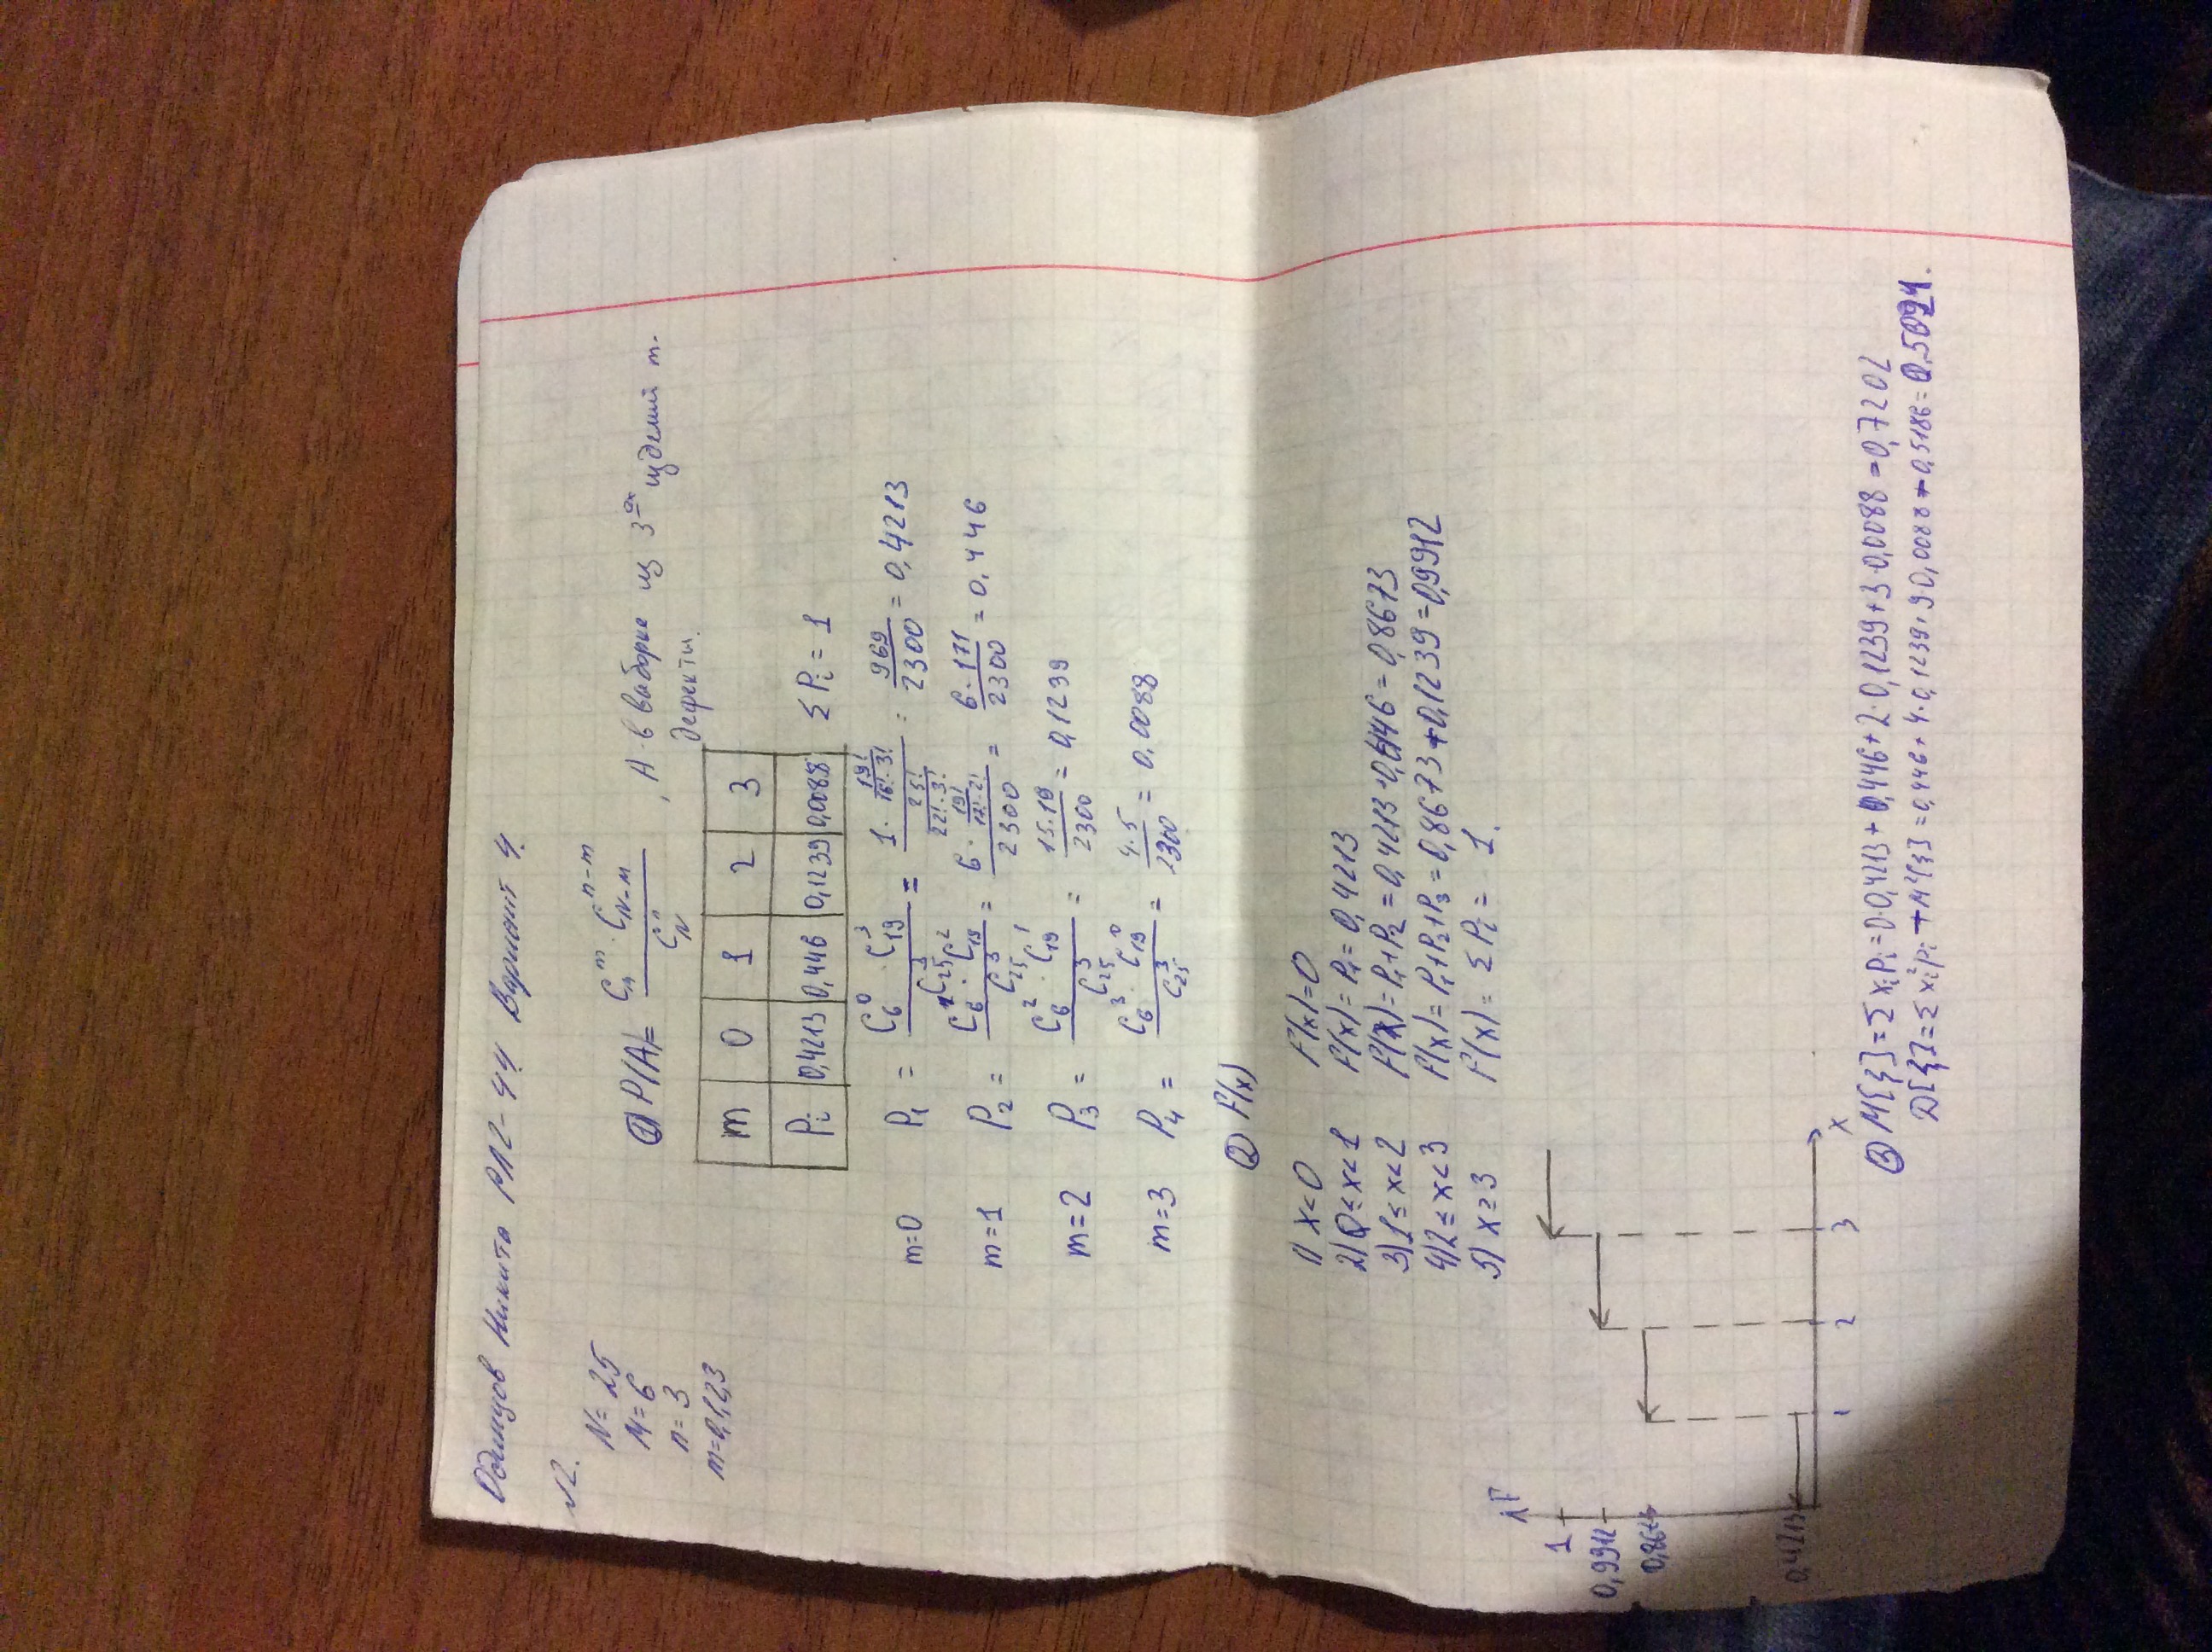 Одинцов Никита РЛ2-44 Вариант 4.
√2.
N=25
M=6
n=3
m=0,1,2,3
① P(A)= C_n^m · C_{N-M}^{n-m} / C_N^n , A - в выборке из 3ех изделий m - дефектн.
m 0 1 2 3
Pi 0,4213 0,446 0,1239 0,0088 Σ Pi = 1
m=0 P1 = C_6^0 · C_19^3 / C_25^3 = 1 · 19!/(16!·3!) / 25!/(22!·3!) = 969/2300 = 0,4213
m=1 P2 = C_6^1 · C_19^2 / C_25^3 = 6 · 19!/(17!·2!) / 2300 = 6·171/2300 = 0,446
m=2 P3 = C_6^2 · C_19^1 / C_25^3 = 15·19/2300 = 0,1239
m=3 P4 = C_6^3 · C_19^0 / C_25^3 = 4·5/2300 = 0,0088
② F(x)
1) x<0 F(x)=0
2) 0≤x<1 F(x)=P1=0,4213
3) 1≤x<2 F(x)=P1+P2=0,4213+0,446=0,8673
4) 2≤x<3 F(x)=P1+P2+P3=0,8673+0,1239=0,9912
5) x≥3 F(x)= Σ Pi = 1.
F
1
0,9912
0,8673
0,4213
1 2 3 x
③ M[ξ]=Σ xi Pi=0·0,4213+0,446+2·0,1239+3·0,0088=0,7202
D[ξ]=Σ xi² pi - M²[ξ]=0,446+4·0,1239+9·0,0088-0,5186=0,5021.